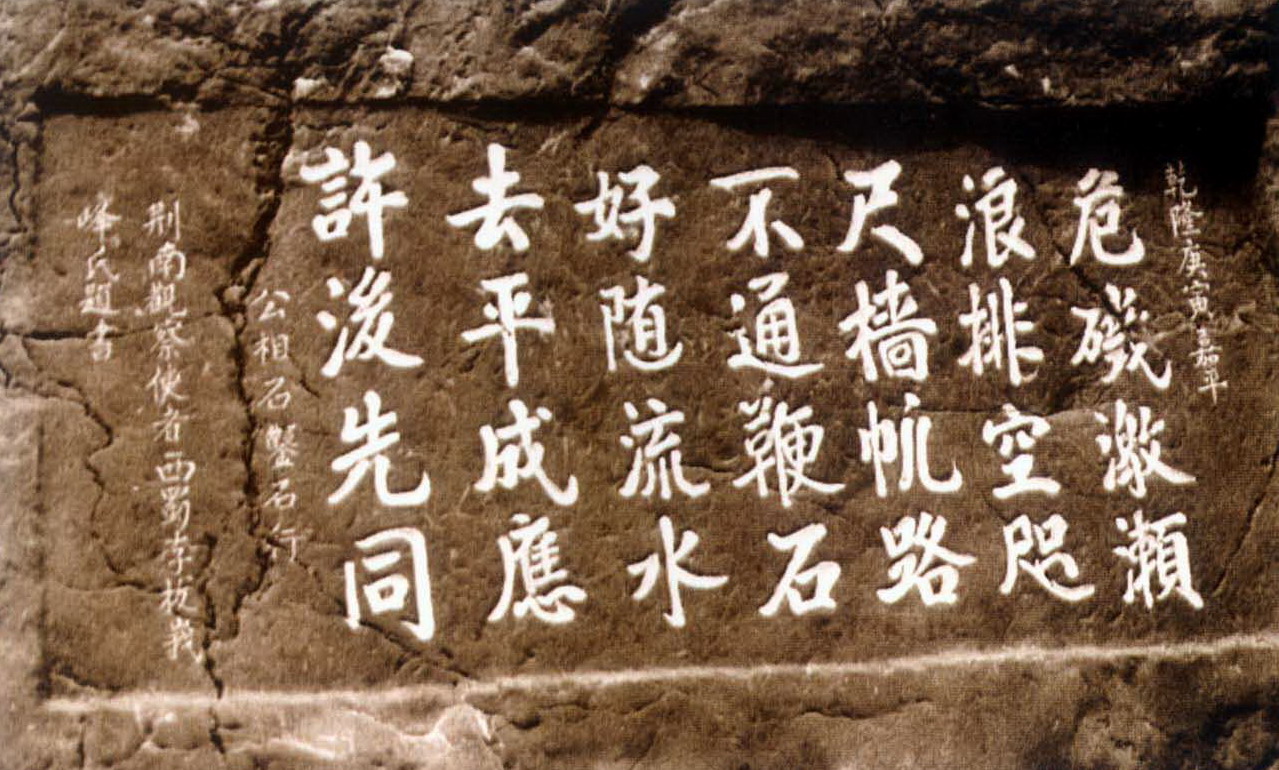 乾隆庚寅嘉平
危磯激瀨
浪排空咫
尺檣帆路
不通鞭石
好随流水
去平成應
許後先同
公相石鑿石行
荆南觀察使者西蜀李拔峩
峰氏題書